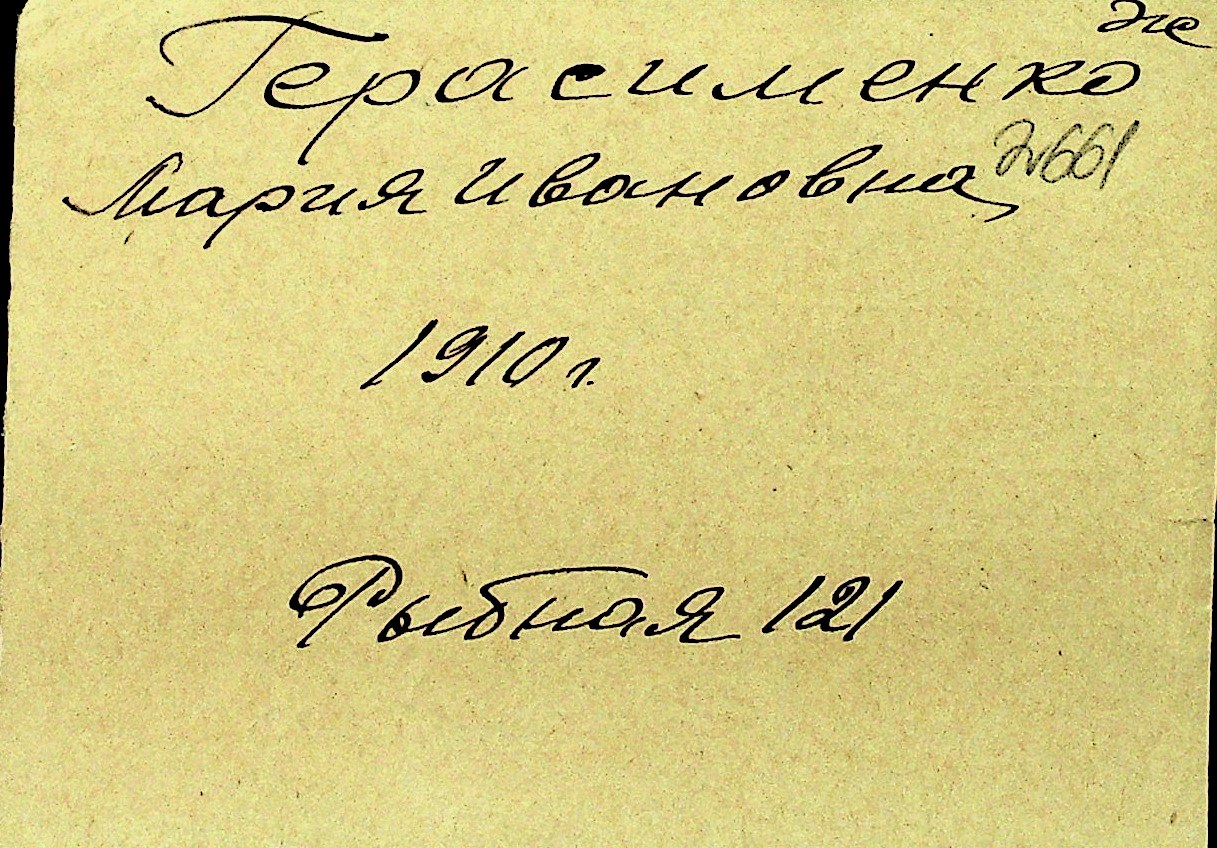 Герасименко
Мария Ивановна
1910 г.
Рыбная 121